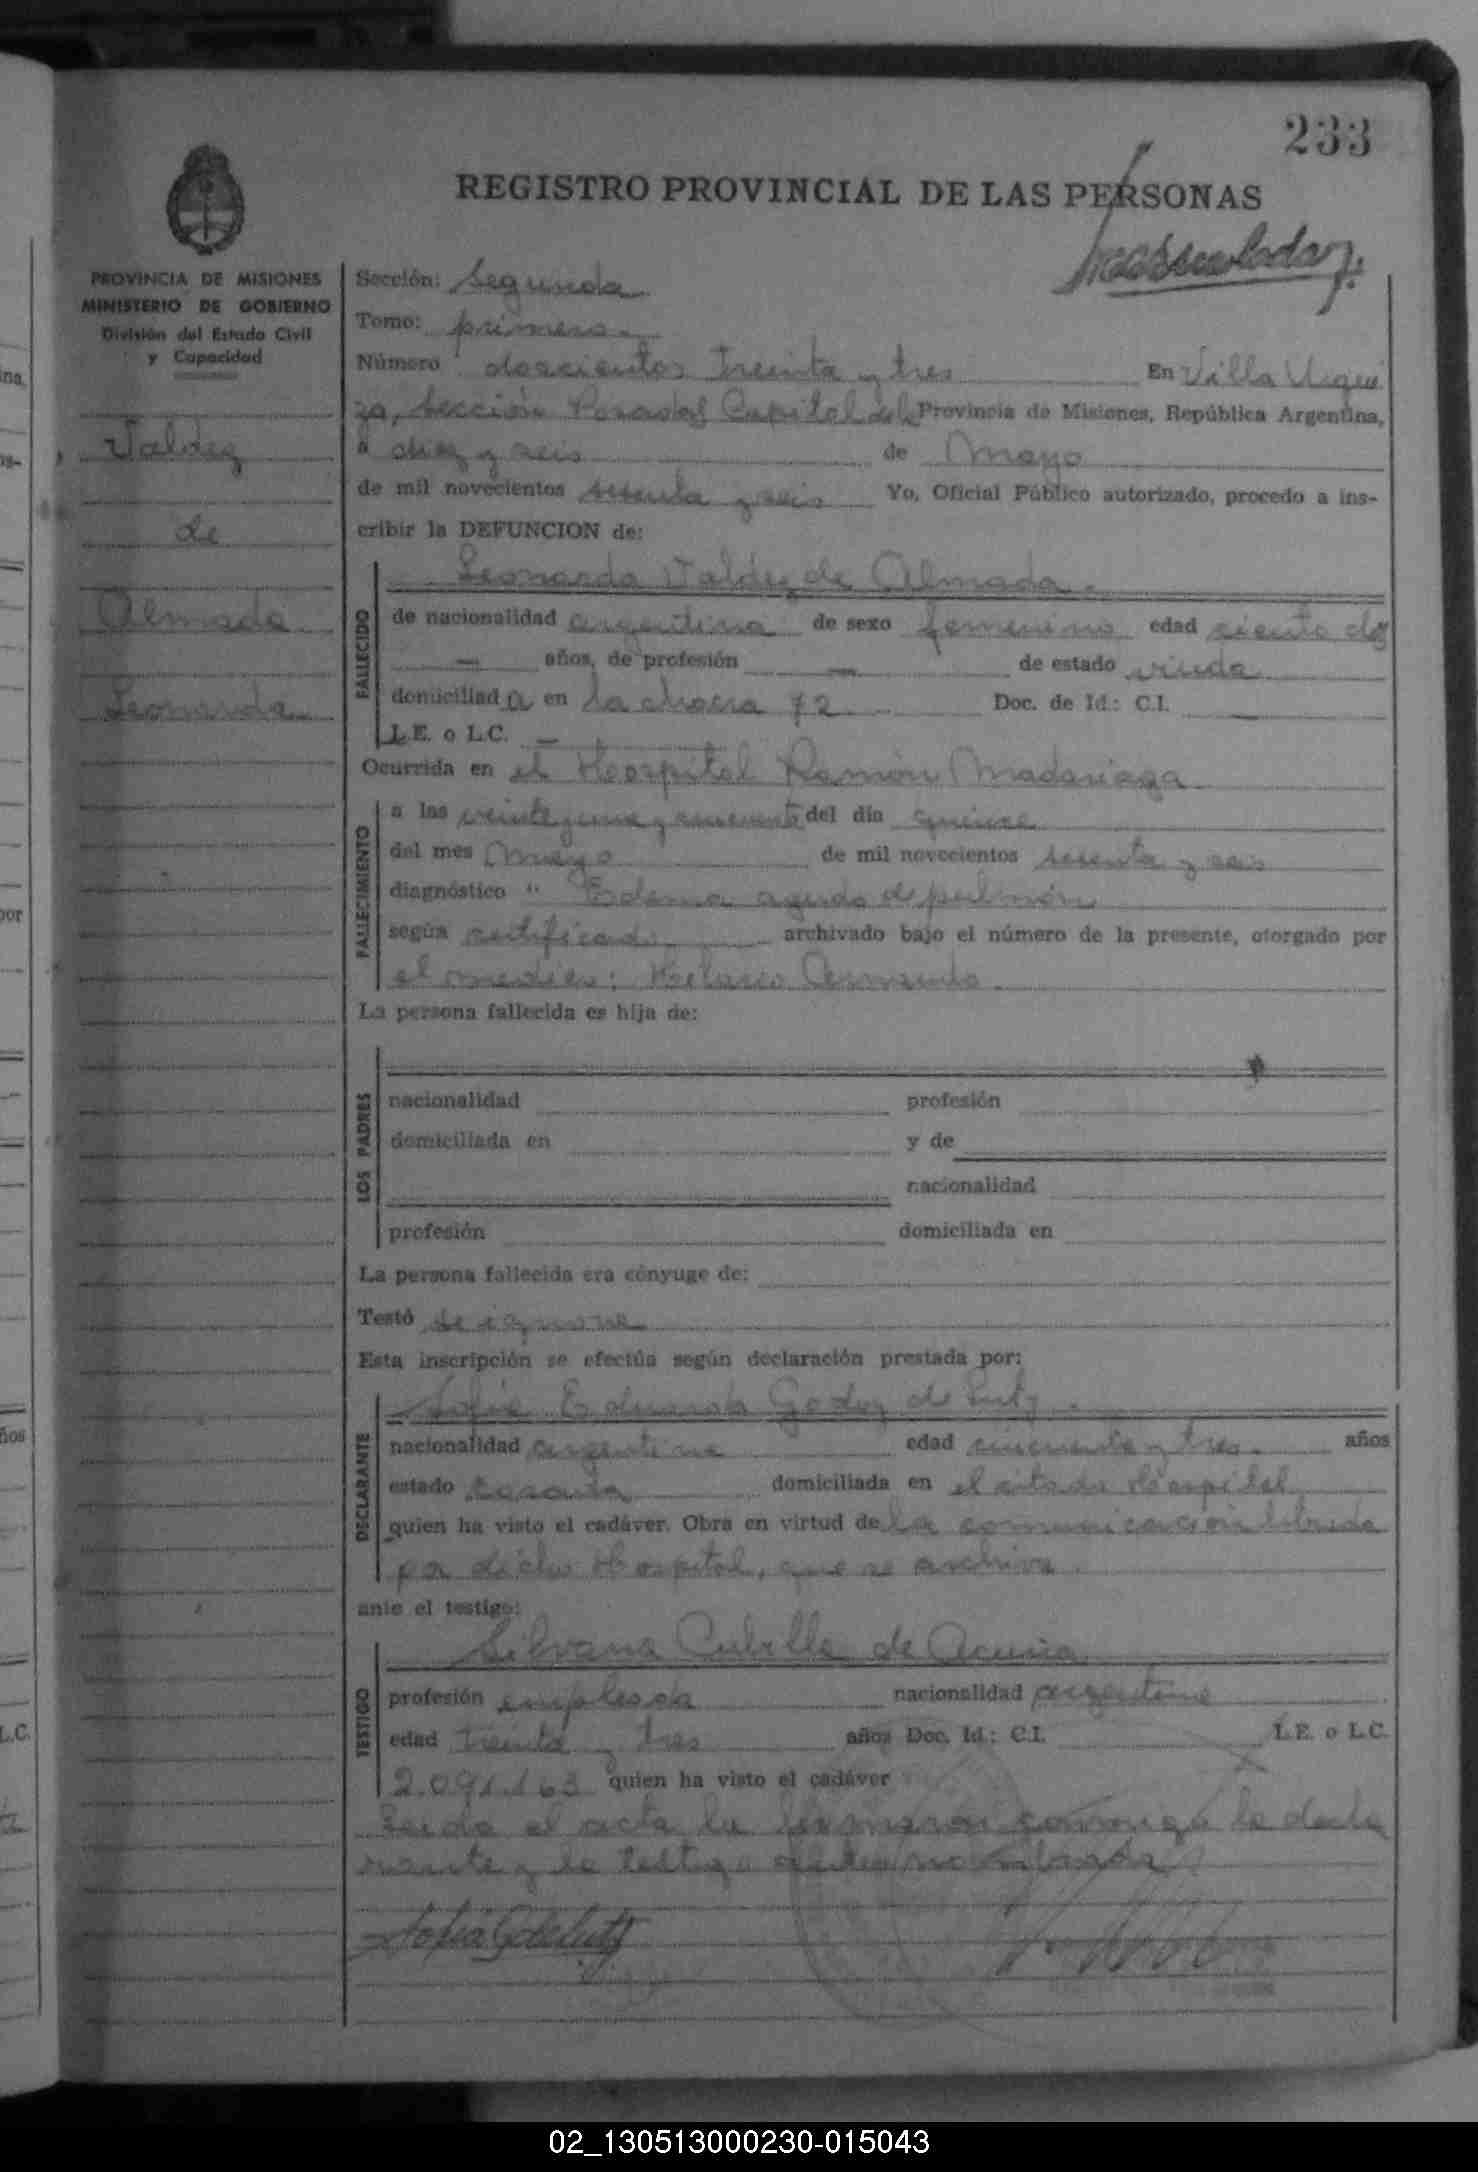 233
REGISTRO PROVINCIAL DE LAS PERSONAS
PROVINCIA DE MISIONES
MINISTERIO DE GOBIERNO
División del Estado Civil
y Capacidad
Valdez
de
Almada
Leonarda
Sección: Segunda
Tomo: primero
Número doscientos treinta y tres En Villa Urqui
za, Sección Posadas Capital de la Provincia de Misiones, República Argentina,
a diez y seis de Mayo
de mil novecientos sesenta y seis Yo, Oficial Público autorizado, procedo a ins-
cribir la DEFUNCION de:
Leonarda Valdez de Almada.
FALLECIDO
de nacionalidad argentina de sexo femenino edad ciento dos
— años, de profesión — de estado viuda
domiciliada en la chacra 72 Doc. de Id.: C.I. —
L.E. o L.C. —
Ocurrida en el Hospital Ramón Madariaga
FALLECIMIENTO
a las veintiuna y cincuenta del día quince
del mes Mayo de mil novecientos sesenta y seis
diagnóstico " Edema agudo de pulmón
según certificado archivado bajo el número de la presente, otorgado por
el médico: Armando
La persona fallecida es hija de:
LOS PADRES
nacionalidad profesión
domiciliada en y de
nacionalidad
profesión domiciliada en
La persona fallecida era cónyuge de:
Testó se ignora
Esta inscripción se efectúa según declaración prestada por:
DECLARANTE
Sofía Eduarda Godoy de Lutz.
nacionalidad argentina edad cincuenta y tres años
estado casada domiciliada en el citado Hospital
quien ha visto el cadáver. Obra en virtud de la comunicación librada
por dicho Hospital, que se archiva.
ante el testigo:
TESTIGO
Silvana Cubilla de Acuña
profesión empleada nacionalidad argentina
edad treinta y tres años Doc. Id.: C.I. L.E. o L.C.
2.091.163 quien ha visto el cadáver
Leida el acta la firmaron conmigo la decla
rante y la testigo
02_130513000230-015043